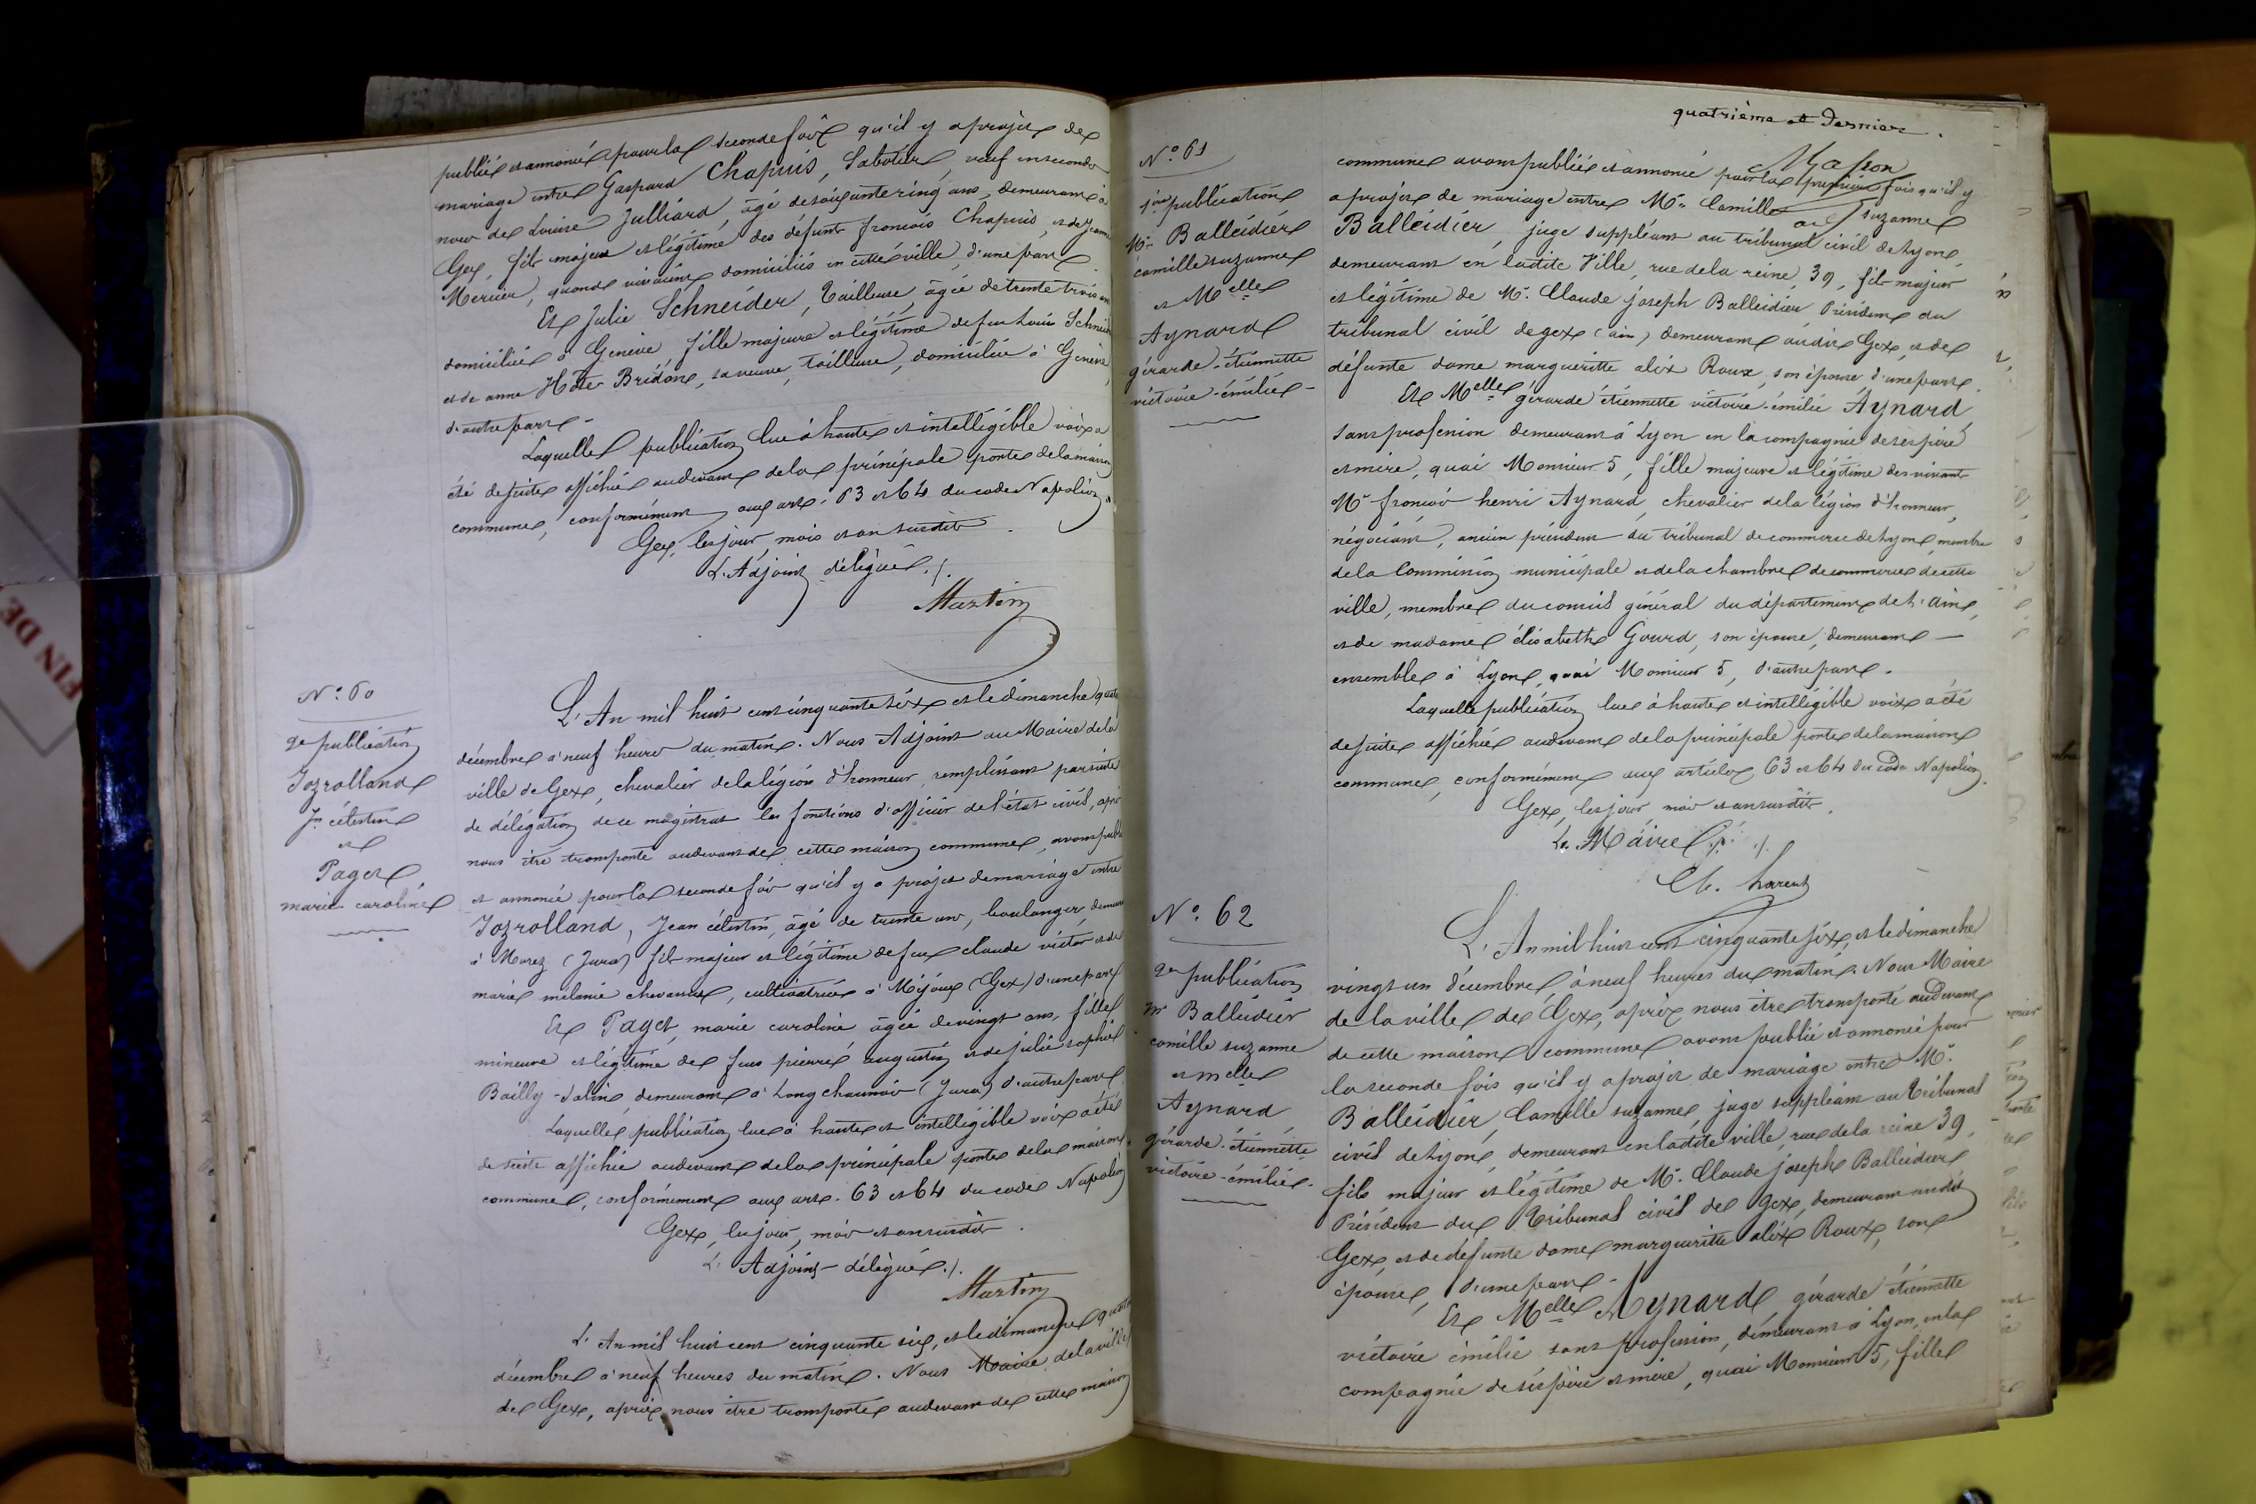 publié et annoncé pour la seconde fois qu'il y a projet de
mariage entre Gaspard Chapuis, Sabotier, veuf en secondes
noces de Louise Julliard, âgé de soixante cinq ans, demeurant à
Gex, fils majeur et légitime des défunts françois Chapuis, et de Jeanne
Mercier, quand vivaient domiciliés en cette ville, d'une part
Et Julie Schneider, Tailleuse, âgée de trente trois ans
domiciliée à Genève, fille majeure et légitime de feu Louis Schneid
et de anne Bridon, sa veuve, tailleuse, domiciliée à Genève,
d'autre part -
Laquelle publication lue à haute et intelligible voix a
été de suite affichée au devant de la principale porte de la maison
commune, conformément aux art. 63 et 64 du code Napoléon.
Gex, les jour, mois et an susdits.
L'Adjoint délégué ./.
Martin
N° 60
2e publication
Jozrolland
Jn célestin
et
Paget
marie caroline
L'An mil huit cent cinquante six et le dimanche quatorze
décembre à neuf heures du matin. Nous Adjoint au Maire de la
ville de Gex, chevalier de la légion d'honneur, remplissant par suite
de délégation de ce magistrat les fonctions d'officier de l'état civil, après
nous être transporté au devant de cette maison commune, avons publié
et annoncé pour la seconde fois qu'il y a projet de mariage entre
Jozrolland, Jean célestin, âgé de trente ans, boulanger, demeur
à Morez (Jura) fils majeur et légitime de feu claude victor et de
marie mélanie chevassus, cultivatrice à Mijoux (Gex) d'une part
Et Paget, marie caroline âgée de vingt ans, fille
mineure et légitime de feus pierre augustin et de julie sophie
Bailly-Salins, demeurant à Longchaumois (Jura) d'autre part
Laquelle publication lue à haute et intelligible voix a été
de suite affichée au devant de la principale porte de la maison
commune, conformément aux art. 63 et 64 du code Napoléon
Gex, les jour, mois et an susdits.
L'Adjoint délégué ./.
Martin
L'An mil huit cent cinquante six, et le dimanche quatorze
décembre à neuf heures du matin. Nous Maire de la ville
de Gex, après nous être transporté au devant de cette maison
quatrième et dernier.
N° 61
1ère publication
Mr Balleidier
camille suzanne
et Melle
Aynard
gérarde-étiennette
victoire-émilie-
commune avons publié et annoncé pour la première fois qu'il y
a projet de mariage entre Mr Camille suzanne
Balleidier, juge suppléant au tribunal civil de Lyon,
demeurant en ladite Ville, rue de la reine, 39, fils majeur
et légitime de Mr. Claude joseph Balleidier Président du
tribunal civil de gex (ain) demeurant audit Gex, et de
défunte dame margueritte alix Roux, son épouse d'une part.
Et Melle gérarde étiennette victoire-émilie Aynard,
sans profession demeurant à Lyon en la compagnie de ses père
et mère, quai Monsieur 5, fille majeure et légitime des vivants
Mr françois henri Aynard, chevalier de la légion d'honneur,
négociant, ancien président du tribunal de commerce de Lyon, membre
de la Commission municipale et de la chambre de commerce de cette
ville, membre du conseil général du département de l'ain,
et de madame élisabeth Gourd, son épouse, demeurant -
ensemble à Lyon, quai Monsieur 5, d'autre part.
Laquelle publication lue à haute et intelligible voix a été
de suite affichée au devant de la principale porte de la maison
commune, conformément aux articles 63 et 64 du code Napoléon.
Gex, les jour mois et an susdits.
Le Maire ./.
N° 62
2e publication
Mr Balleidier
camille suzanne
et melle
Aynard,
gérarde-étiennette
victoire-émilie-
L'An mil huit cent cinquante six, et le dimanche
vingt un décembre à neuf heures du matin. Nous Maire
de la ville de Gex, après nous être transporté au devant
de cette maison commune avons publié et annoncé pour
la seconde fois qu'il y a projet de mariage entre Mr.
Balleidier, Camille suzanne, juge suppléant au Tribunal
civil de Lyon, demeurant en ladite ville, rue de la reine 39,
fils majeur et légitime de Mr. Claude joseph Balleidier
Président du Tribunal civil de gex, demeurant audit
Gex, et de défunte dame margueritte alix Roux, son
épouse, d'une part -
Et Melle Aynard, gérarde étiennette
victoire émilie sans profession, demeurant à Lyon, en la
compagnie de ses père et mère, quai Monsieur 5, fille